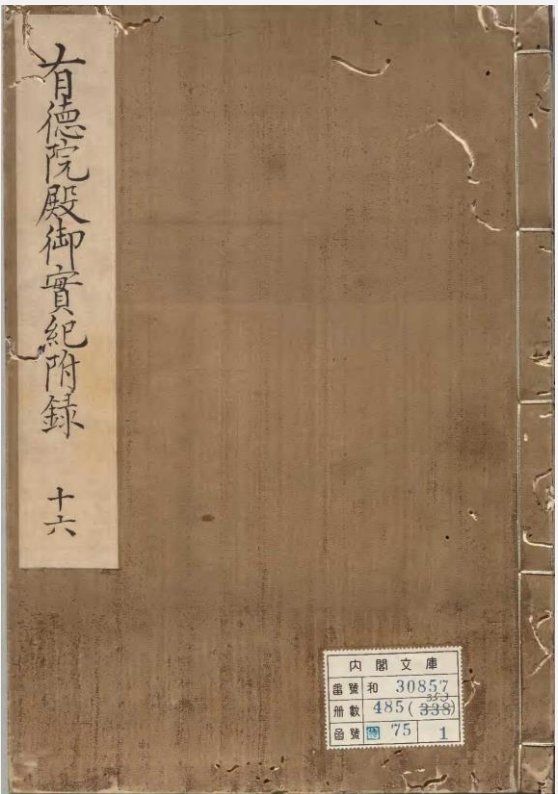 有徳院殿御實紀附録 十六
内閣文庫
番號 和 30857
冊數 485(353 338)
函號 特 75 1